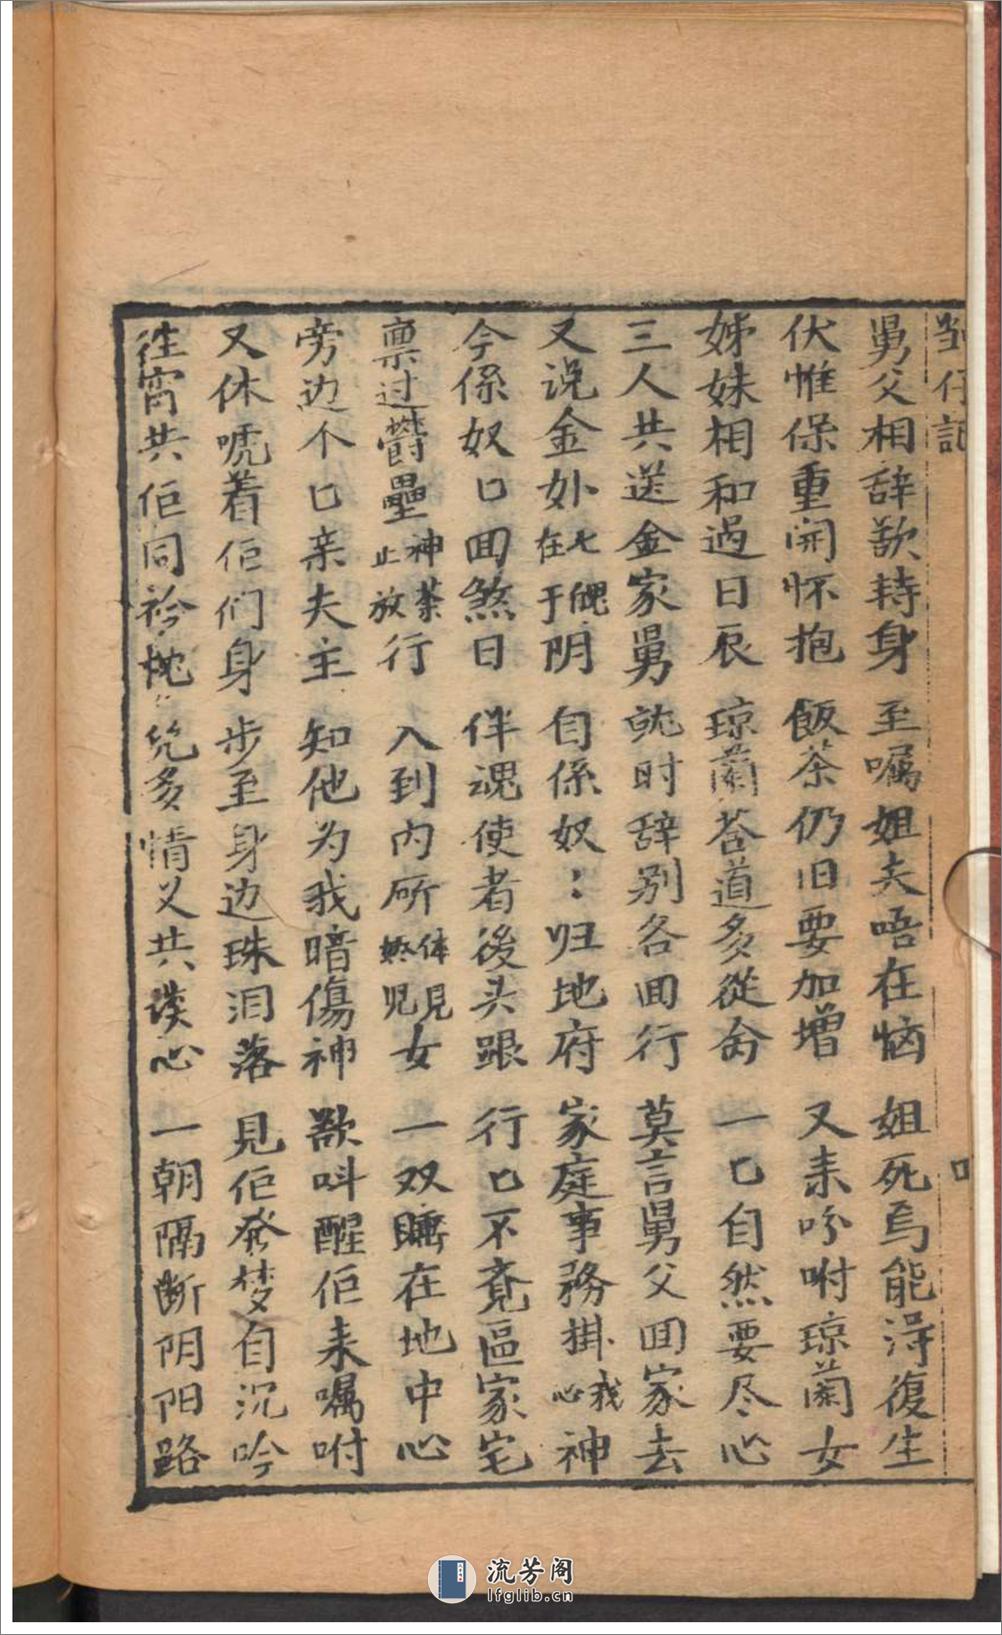 舅父相辞欲转身　至嘱姐夫唔在恼　姐死焉能淂復生
伏惟保重開怀抱　飯茶仍旧要加增　又来吩咐琼蘭女
姊妹相和過日辰　琼蘭荅道多從命　一七自然要尽心
三人共送金家舅　就时辞别各回行　莫言舅父回家去
又说金外七魄在于阴　自係奴：归地府　家庭事務掛我心神
今係奴七回煞日　伴魂使者後头跟　行七不竟區家宅
禀过欝壘神荼止放行　入到内所体見孩児女　一双睡在地中心
旁边个七亲夫主　知他为我暗傷神　欲呌醒佢来嘱咐
又休唬着佢们身　步至身边珠泪落　見佢發梦自沉吟
往宵共佢同衾枕　几多情义共谈心　一朝隔断阴阳路
仔記
流芳阁
lfglib.cn